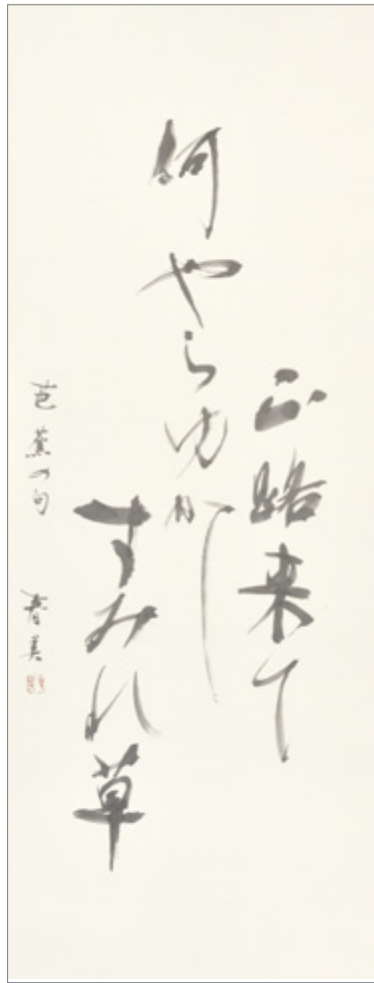 山路来て
何やらゆかし
すみれ草
芭蕉の句
春美